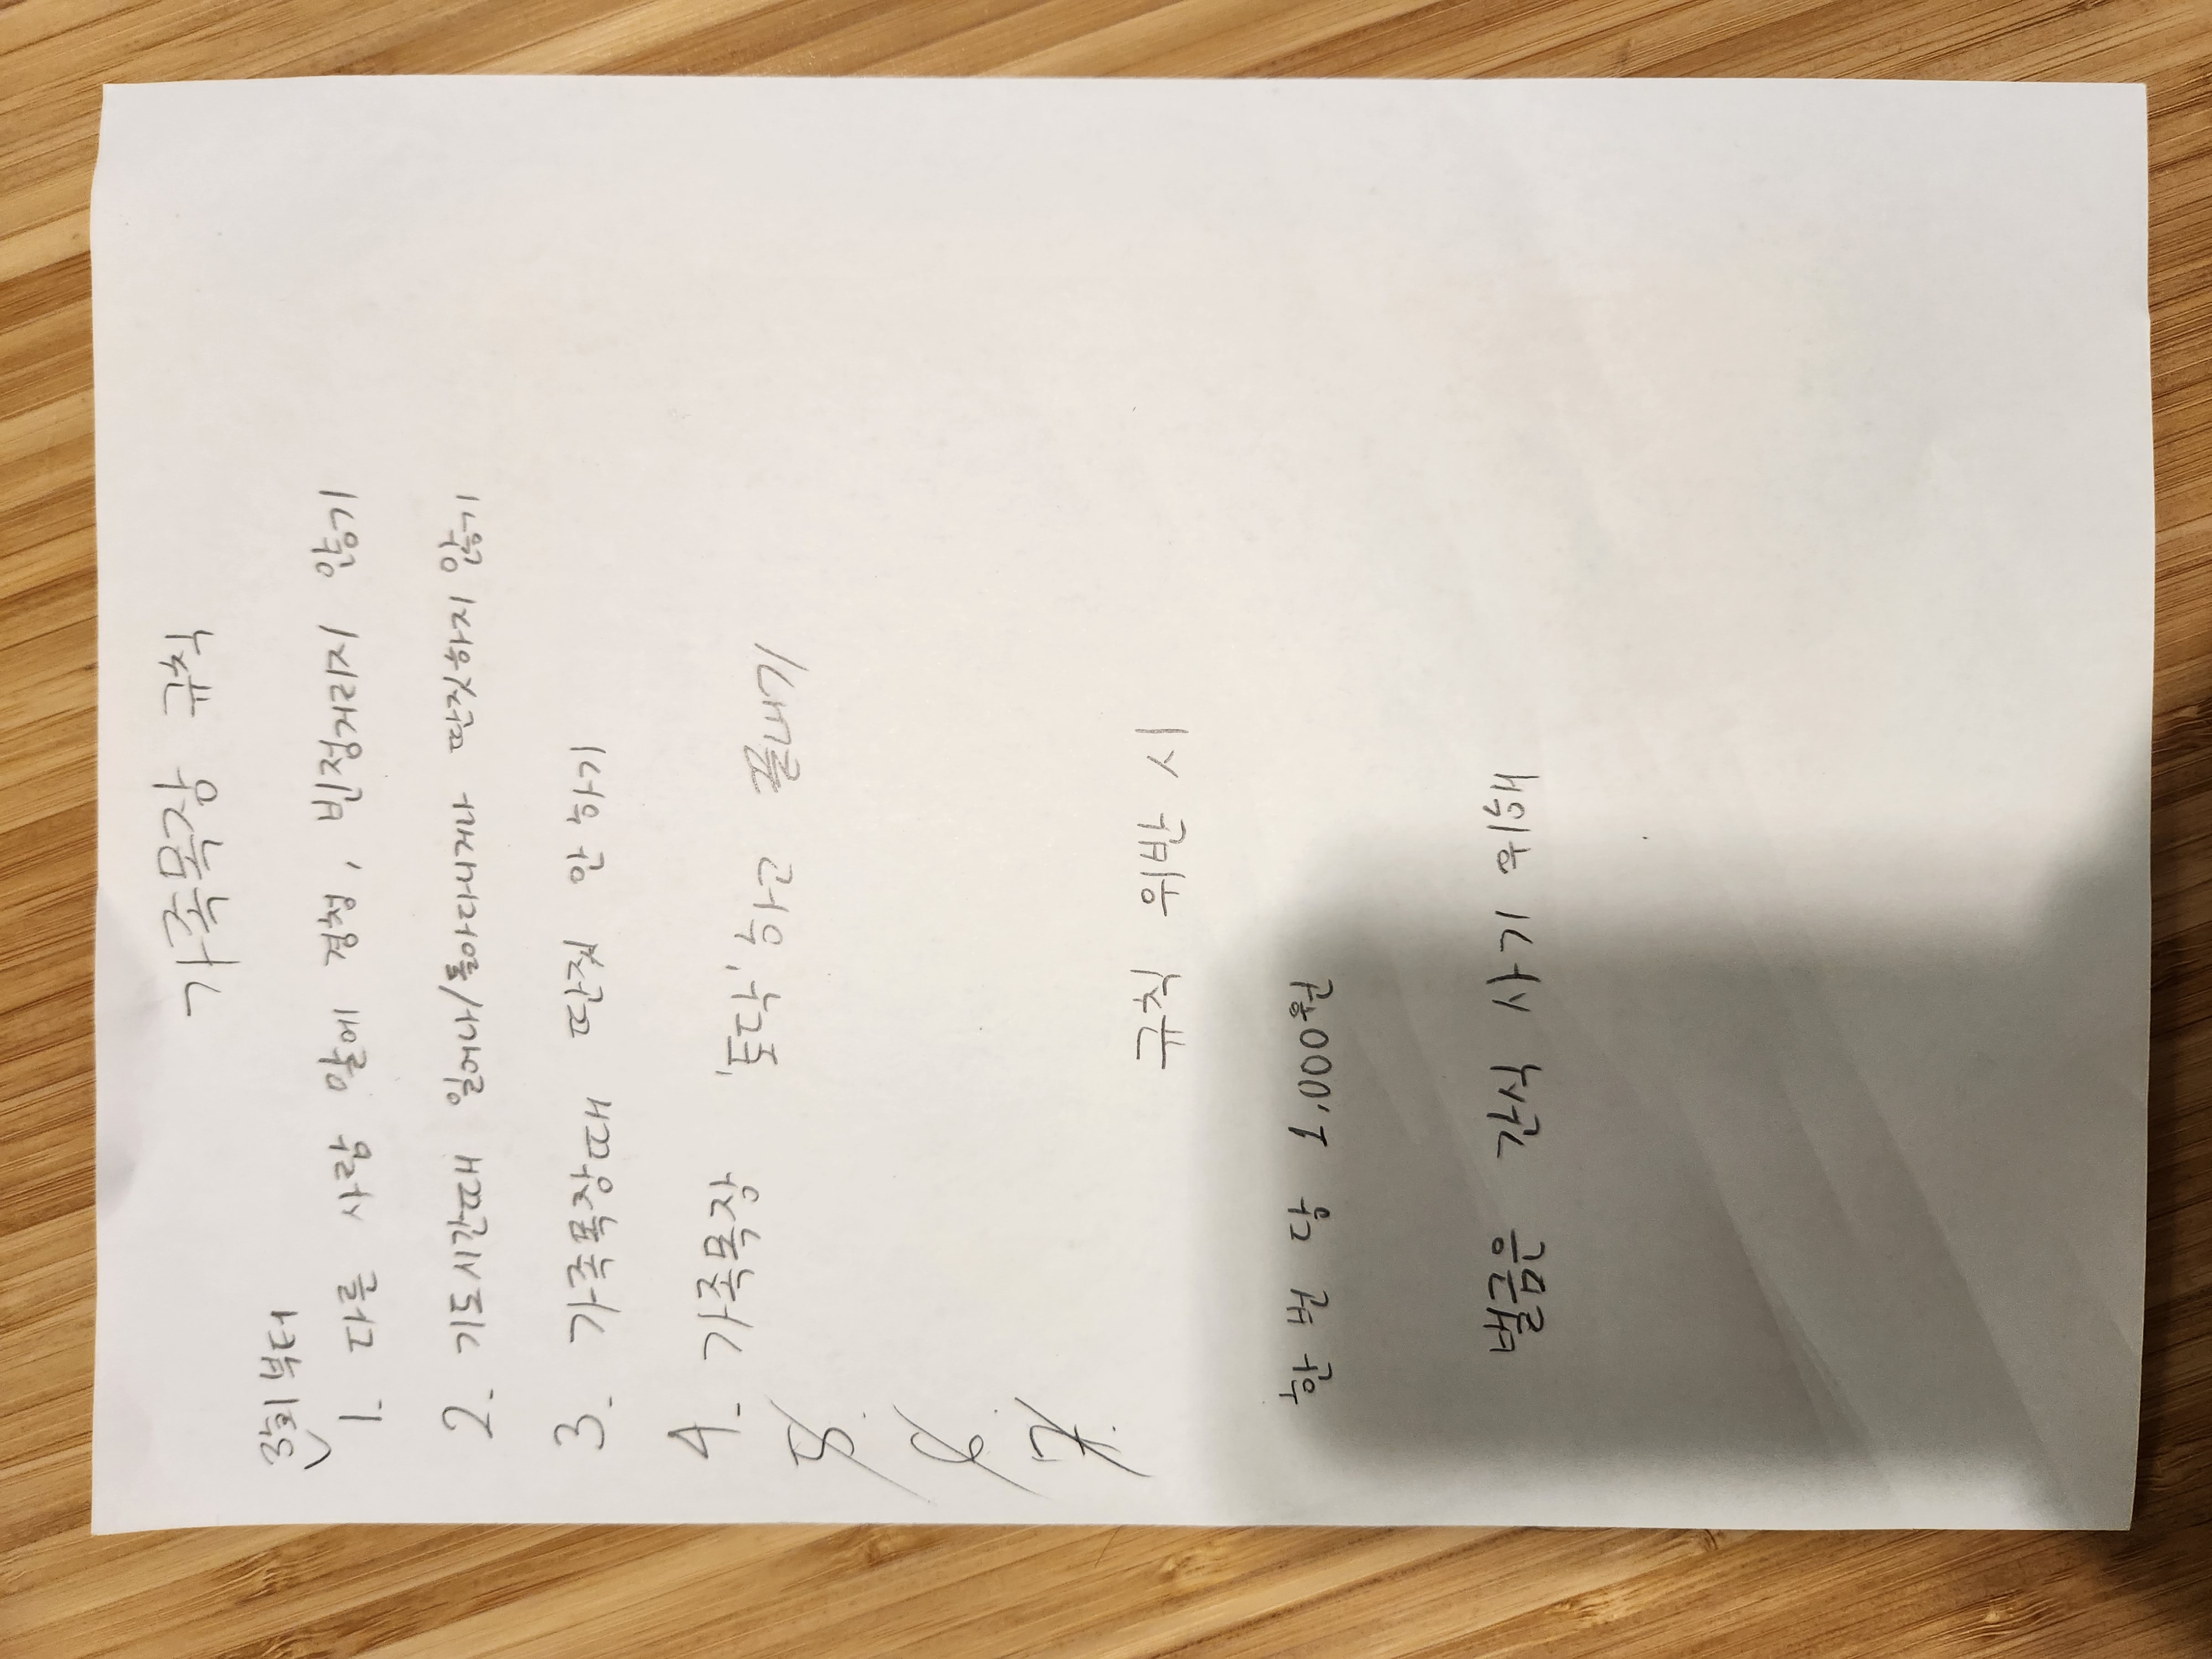 가족목장 규칙
3회부터
1. 다른 사람 말에 경청, 빈정거리지 않기
2. 기도시간때 일어나/돌아다니거나 딴짓하지 않기
3. 가족목장때 딴짓 안 하기
4. 가족목장 '토닥'하고 끝내기
5.
6.
7.
규칙 위반 시
한 번 당 1,000원
벌금은 간식 사기 위해